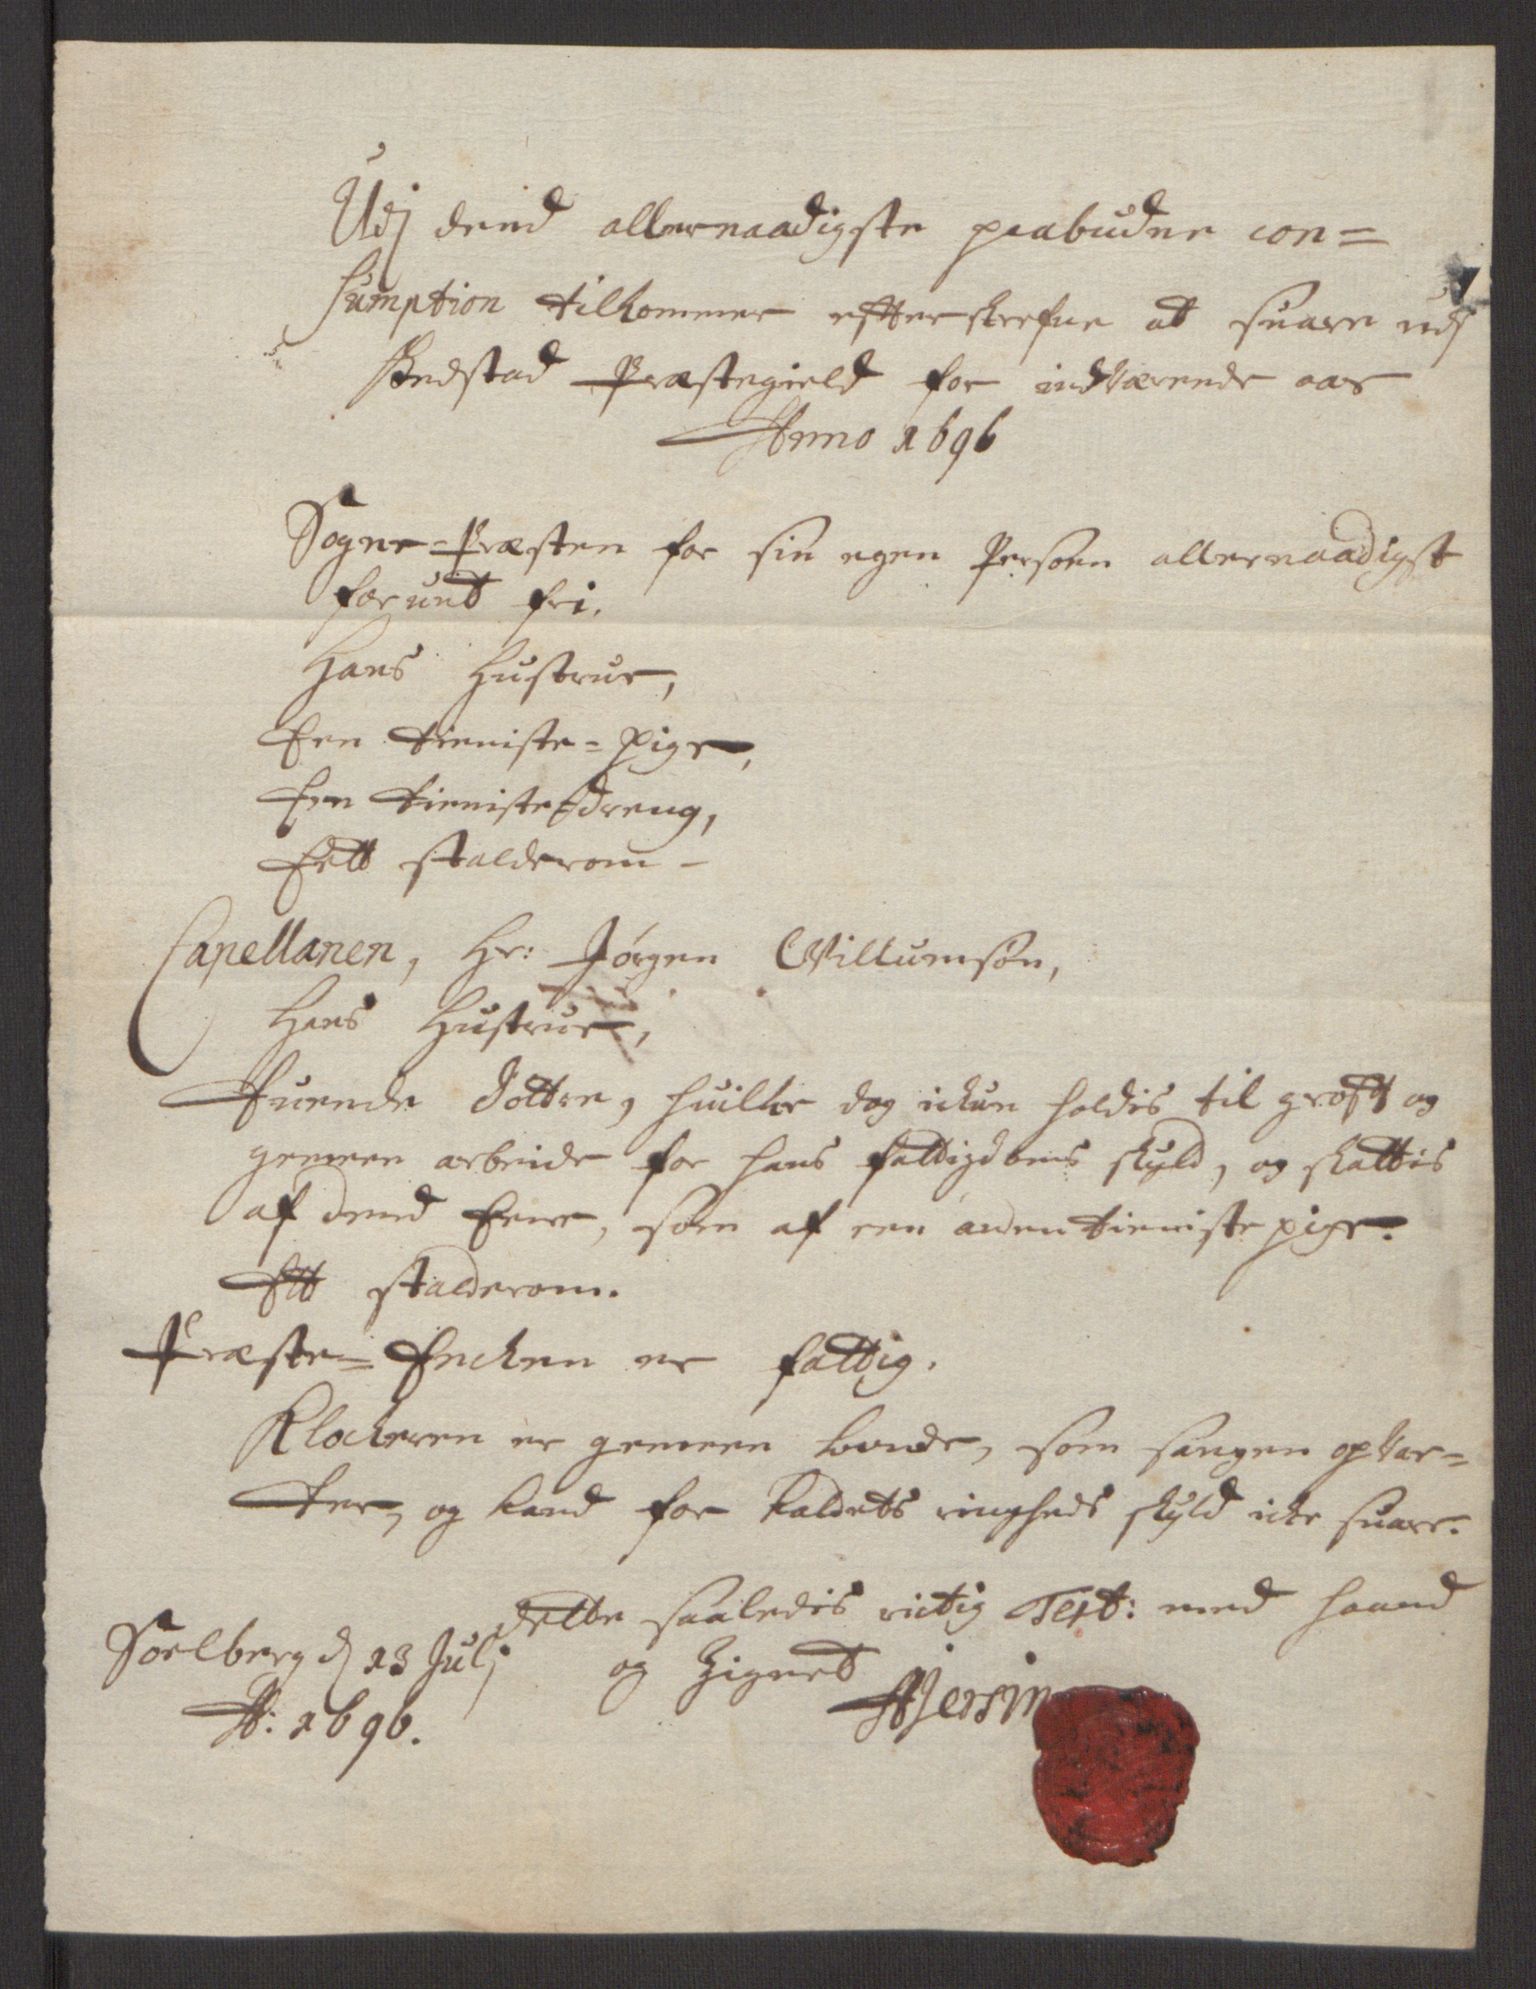 Udj dend allernaadigste paabudne con=
sumption tilkommer efterskrefne at suare udj
Hedstad Præstegield for indværende aar
Anno 1696
Sogne=Præsten for sin egen Persoen allernaadigst
forundt fri.
Hans Hustrue,
Een tieniste=pige,
Een tieniste dreng,
Eett stalderom -
Capellanen, Hr: Jørgen Willumsøn,
Hans Hustrue,
Tuende Døttre, huilke dog ickun holdis til grofft og
gemeen arbeide for hans fattigdoms skyld, og skattis
af dend Eene, som af een anden tieniste pige.
Ett stalderom.
Præste=Encken er fattig.
Klockeren er gemeen bonde, som sangen opvar=
ter, og kand for kaldets ringheds skyld icke suare.
Dette saaledis rictig Test: med haand
og Zignet
Soelberg d 13 Julj
A: 1696.